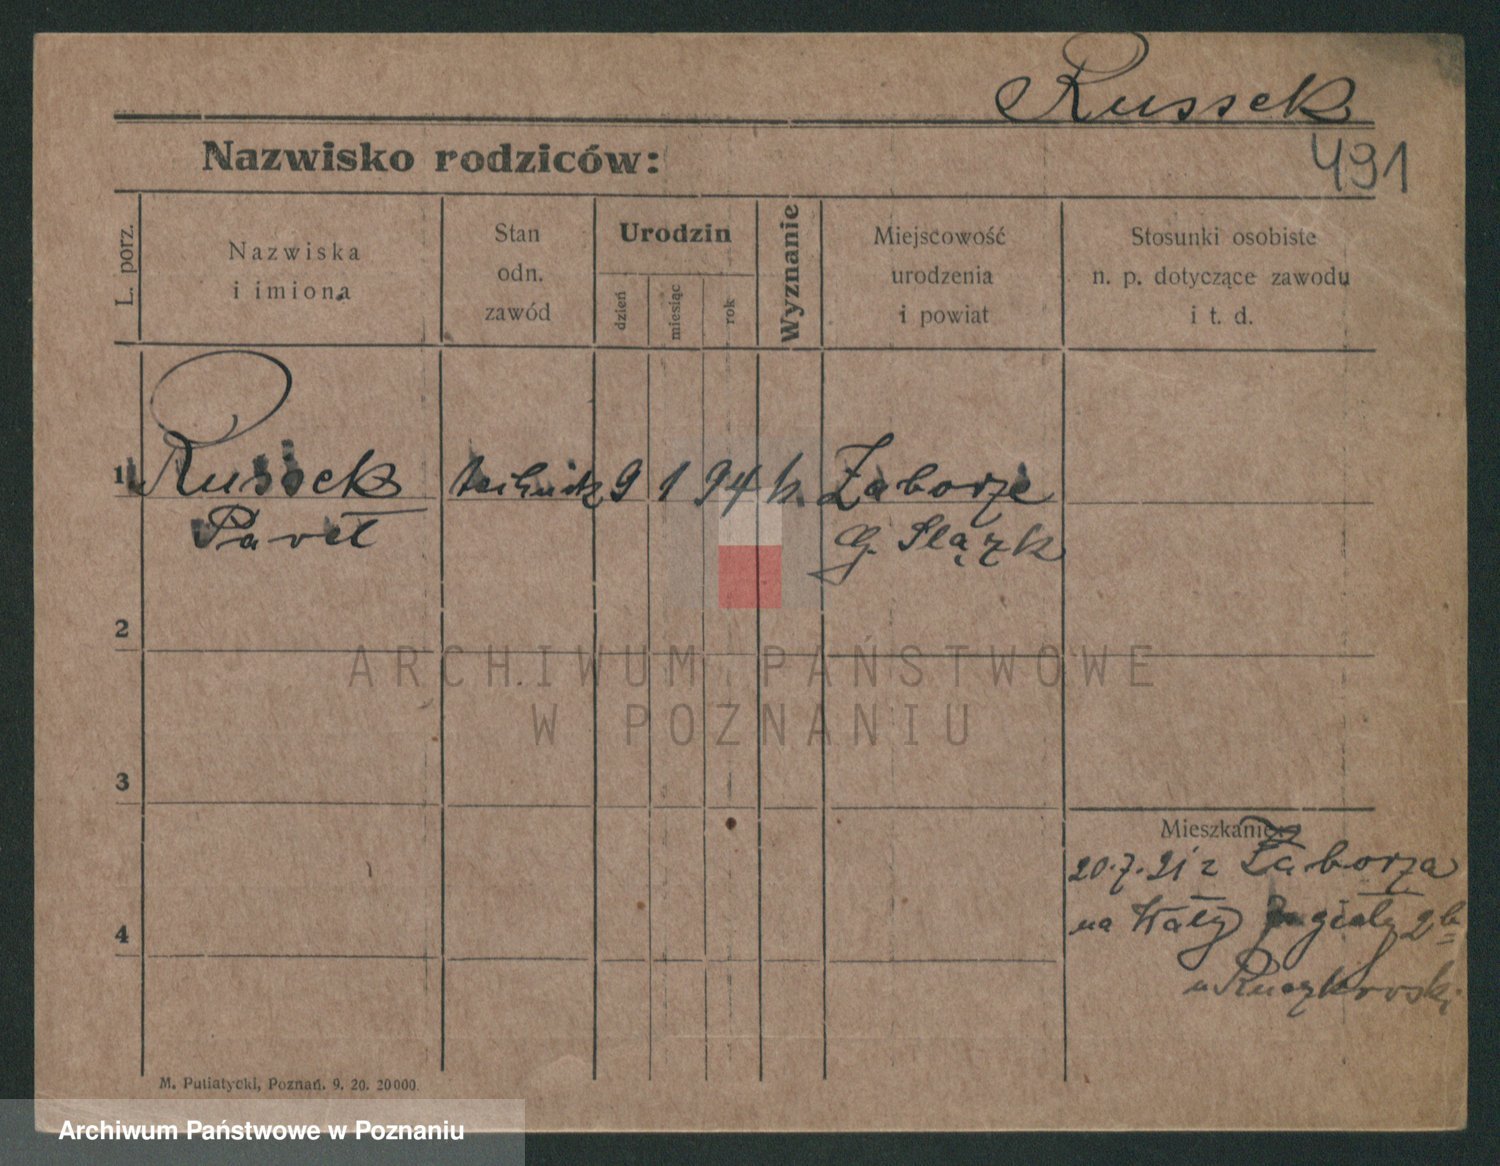 Russek
Nazwisko rodziców:
491
L. porz.
Nazwiska
i imiona
Stan
odn.
zawód
Urodzin
dzień
miesiąc
rok
Wyznanie
Miejscowość
urodzenia
i powiat
Stosunki osobiste
n. p. dotyczące zawodu
i t. d.
1 Russek technik 9 1 94 k. Zaborze
Paweł G. Slązk
2
ARCHIWUM PAŃSTWOWE
W POZNANIU
3
Mieszkanie:
20.7.21 z Zaborza
4
na Wały 2
u
M. Putiatycki, Poznań. 9. 20. 20000.
Archiwum Państwowe w Poznaniu